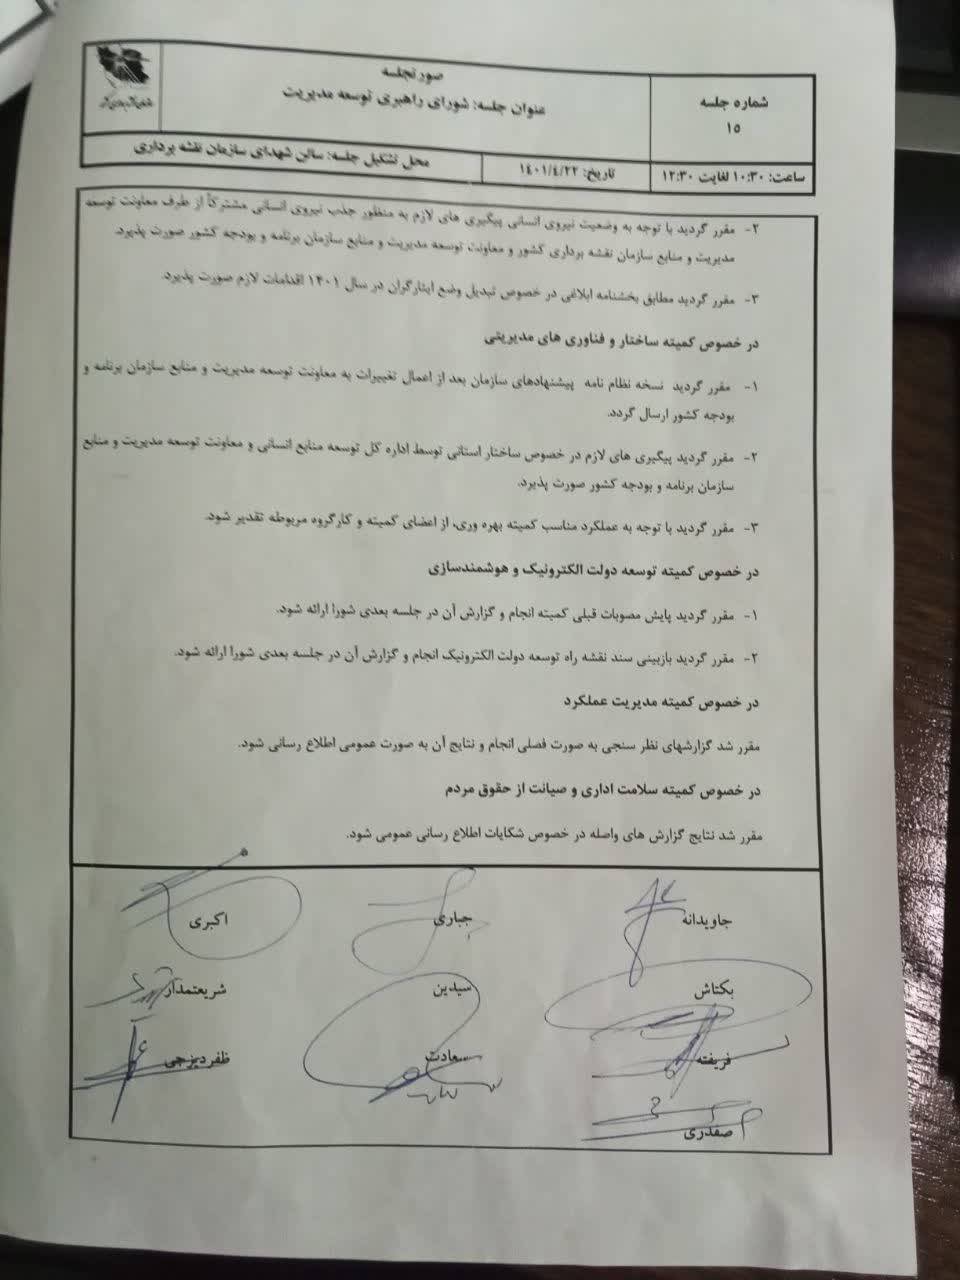 صورتجلسه
عنوان جلسه: شورای راهبری توسعه مدیریت
شماره جلسه
۱۵
محل تشکیل جلسه: سالن شهدای سازمان نقشه برداری
تاریخ: ۱۴۰۱/۴/۲۲
ساعت: ۱۰:۳۰ لغایت ۱۲:۳۰
۲- مقرر گردید با توجه به وضعیت نیروی انسانی پیگیری های لازم به منظور جذب نیروی انسانی مشترکاً از طرف معاونت توسعه
مدیریت و منابع سازمان نقشه برداری کشور و معاونت توسعه مدیریت و منابع سازمان برنامه و بودجه کشور صورت پذیرد.
۳- مقرر گردید مطابق بخشنامه ابلاغی در خصوص تبدیل وضع ایثارگران در سال ۱۴۰۱ اقدامات لازم صورت پذیرد.
در خصوص کمیته ساختار و فناوری های مدیریتی
۱- مقرر گردید نسخه نظام نامه پیشنهادهای سازمان بعد از اعمال تغییرات به معاونت توسعه مدیریت و منابع سازمان برنامه و
بودجه کشور ارسال گردد.
۲- مقرر گردید پیگیری های لازم در خصوص ساختار استانی توسط اداره کل توسعه منابع انسانی و معاونت توسعه مدیریت و منابع
سازمان برنامه و بودجه کشور صورت پذیرد.
۳- مقرر گردید با توجه به عملکرد مناسب کمیته بهره وری، از اعضای کمیته و کارگروه مربوطه تقدیر شود.
در خصوص کمیته توسعه دولت الکترونیک و هوشمندسازی
۱- مقرر گردید پایش مصوبات قبلی کمیته انجام و گزارش آن در جلسه بعدی شورا ارائه شود.
۲- مقرر گردید بازبینی سند نقشه راه توسعه دولت الکترونیک انجام و گزارش آن در جلسه بعدی شورا ارائه شود.
در خصوص کمیته مدیریت عملکرد
مقرر شد گزارشهای نظر سنجی به صورت فصلی انجام و نتایج آن به صورت عمومی اطلاع رسانی شود.
در خصوص کمیته سلامت اداری و صیانت از حقوق مردم
مقرر شد نتایج گزارش های واصله در خصوص شکایات اطلاع رسانی عمومی شود.
جاویدانه
جباری
اکبری
بکتاش
سیدین
شریعتمدار
فریفته
سعادت
ظفردیزجی
صفدری